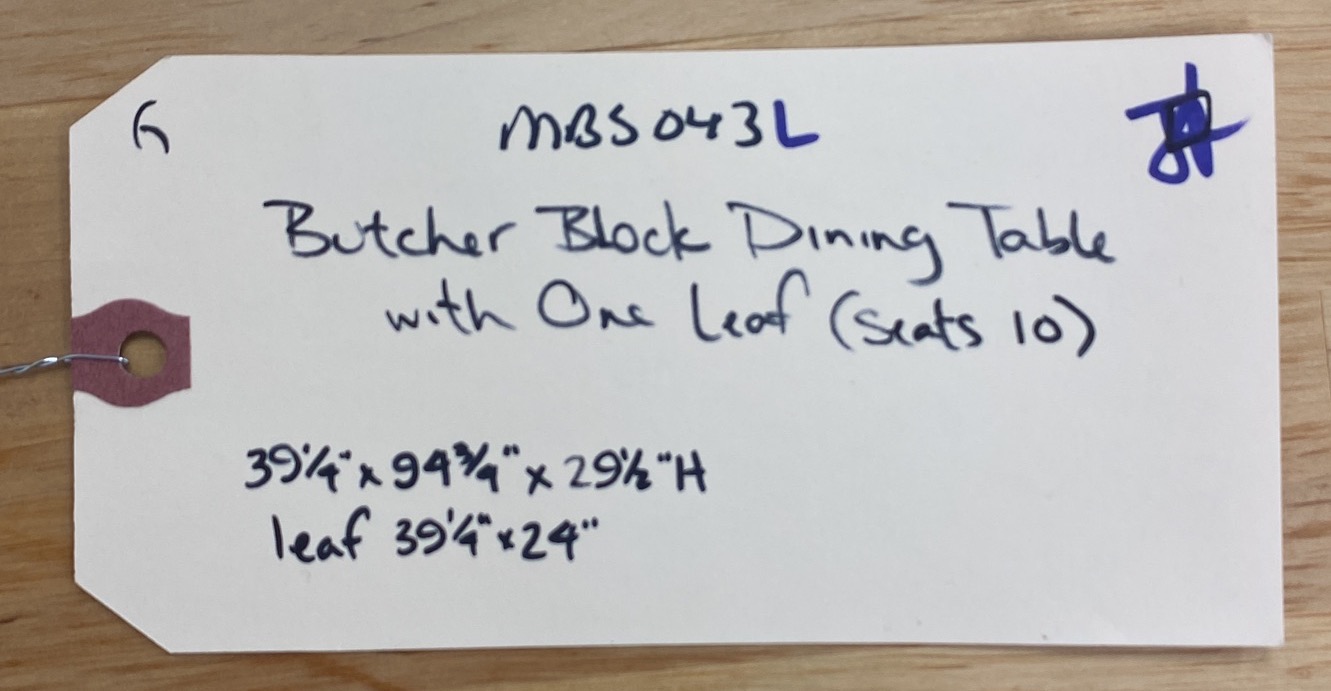 G
MBS043L
Butcher Block Dining Table
with One Leaf (Seats 10)
39 1/4" x 94 3/4" x 29 1/2" H
leaf 39 1/4" x 24"